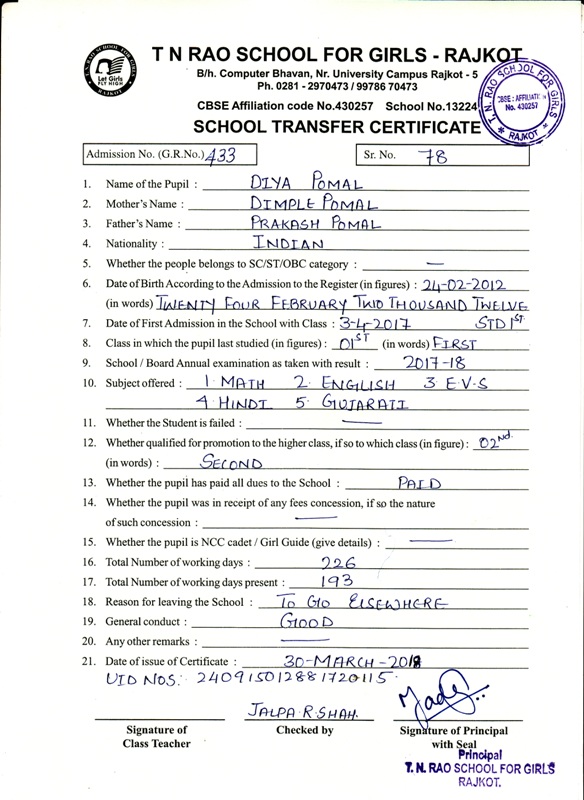 T. N. RAO SCHOOL FOR GIRLS
Let Girls
FLY HIGH
RAJKOT
T N RAO SCHOOL FOR GIRLS - RAJKOT
B/h. Computer Bhavan, Nr. University Campus Rajkot - 5
Ph. 0281 - 2970473 / 99786 70473
CBSE Affiliation code No.430257 School No.13224
T. N. RAO SCHOOL FOR GIRLS
CBSE : AFFILIATION
No. 430257
RAJKOT
SCHOOL TRANSFER CERTIFICATE
Admission No. (G.R.No.) 433 Sr. No. 78
1. Name of the Pupil : DIYA POMAL
2. Mother's Name : DIMPLE POMAL
3. Father's Name : PRAKASH POMAL
4. Nationality : INDIAN
5. Whether the people belongs to SC/ST/OBC category : —
6. Date of Birth According to the Admission to the Register (in figures) : 24-02-2012
(in words) TWENTY FOUR FEBRUARY TWO THOUSAND TWELVE
7. Date of First Admission in the School with Class : 3-4-2017 STD 1ST
8. Class in which the pupil last studied (in figures) : 01ST (in words) FIRST
9. School / Board Annual examination as taken with result : 2017-18
10. Subject offered : 1 MATH 2 ENGLISH 3 E.V.S
4 HINDI 5 GUJARATI
11. Whether the Student is failed : —
12. Whether qualified for promotion to the higher class, if so to which class (in figure) : 02nd
(in words) : SECOND
13. Whether the pupil has paid all dues to the School : PAID
14. Whether the pupil was in receipt of any fees concession, if so the nature
of such concession : —
15. Whether the pupil is NCC cadet / Girl Guide (give details) : —
16. Total Number of working days : 226
17. Total Number of working days present : 193
18. Reason for leaving the School : TO GO ELSEWHERE
19. General conduct : GOOD
20. Any other remarks : —
21. Date of issue of Certificate : 30-MARCH-2018
UID NOS: 240915012881720115.
JALPA.R.SHAH.
Signature of
Class Teacher
Checked by
Signature of Principal
with Seal
Principal
T. N. RAO SCHOOL FOR GIRLS
RAJKOT.